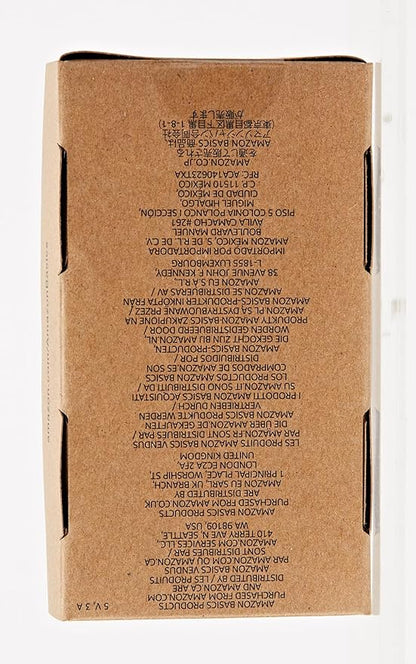 AMAZON BASICS PRODUCTS
PURCHASED FROM AMAZON.COM
AND .CA ARE
DISTRIBUTED BY / LES PRODUITS
AMAZON BASICS VENDUS
PAR AMAZON.COM OU AMAZON.CA
SONT DISTRIBUÉS PAR /
AMAZON.COM SERVICES LLC
410 TERRY AVE. N, SEATTLE,
WA 98109, USA
AMAZON BASICS PRODUCTS
PURCHASED FROM AMAZON.CO.UK
ARE DISTRIBUTED BY
AMAZON EU SARL, UK BRANCH,
1 PRINCIPAL PLACE, WORSHIP ST,
LONDON EC2A 2FA,
UNITED KINGDOM
LES PRODUITS AMAZON BASICS VENDUS
PAR AMAZON.FR SONT DISTRIBUÉS PAR /
DIE ÜBER AMAZON.DE GEKAUFTEN
AMAZON BASICS PRODUKTE WERDEN
VERTRIEBEN DURCH /
I PRODOTTI AMAZON BASICS ACQUISTATI
SU AMAZON.IT SONO DISTRIBUITI DA /
LOS PRODUCTOS AMAZON BASICS
COMPRADOS DE AMAZON.ES SON
DISTRIBUIDOS POR /
AMAZON BASICS-PRODUCTEN
DIE GEKOCHT ZIJN BIJ AMAZON.NL
WORDEN GEDISTRIBUEERD DOOR /
PRODUKTY AMAZON BASICS ZAKUPIONE NA
AMAZON.PL SĄ DYSTRYBUOWANE PRZEZ /
AMAZON BASICS-PRODUKTER INKÖPTA FRÅN
AMAZON.SE DISTRIBUERAS AV /
AMAZON EU S.À R.L.
38 AVENUE JOHN F. KENNEDY,
L-1855 LUXEMBOURG
IMPORTADO POR IMPORTADORA
AMAZON MÉXICO, S. DE R.L. DE C.V.
AVILA CAMACHO #261
BOULEVARD MANUEL
PISO 5 COLONIA POLANCO I SECCIÓN,
MIGUEL HIDALGO,
CIUDAD DE MÉXICO,
C.P. 11510 MÉXICO
RFC. ACA140623TXA
AMAZON.CO.JP
を通して販売される
AMAZON BASICS 商品は
アマゾンジャパン合同会社
(東京都目黒区下目黒 1-8-1)
が販売します
5 V, 3 A